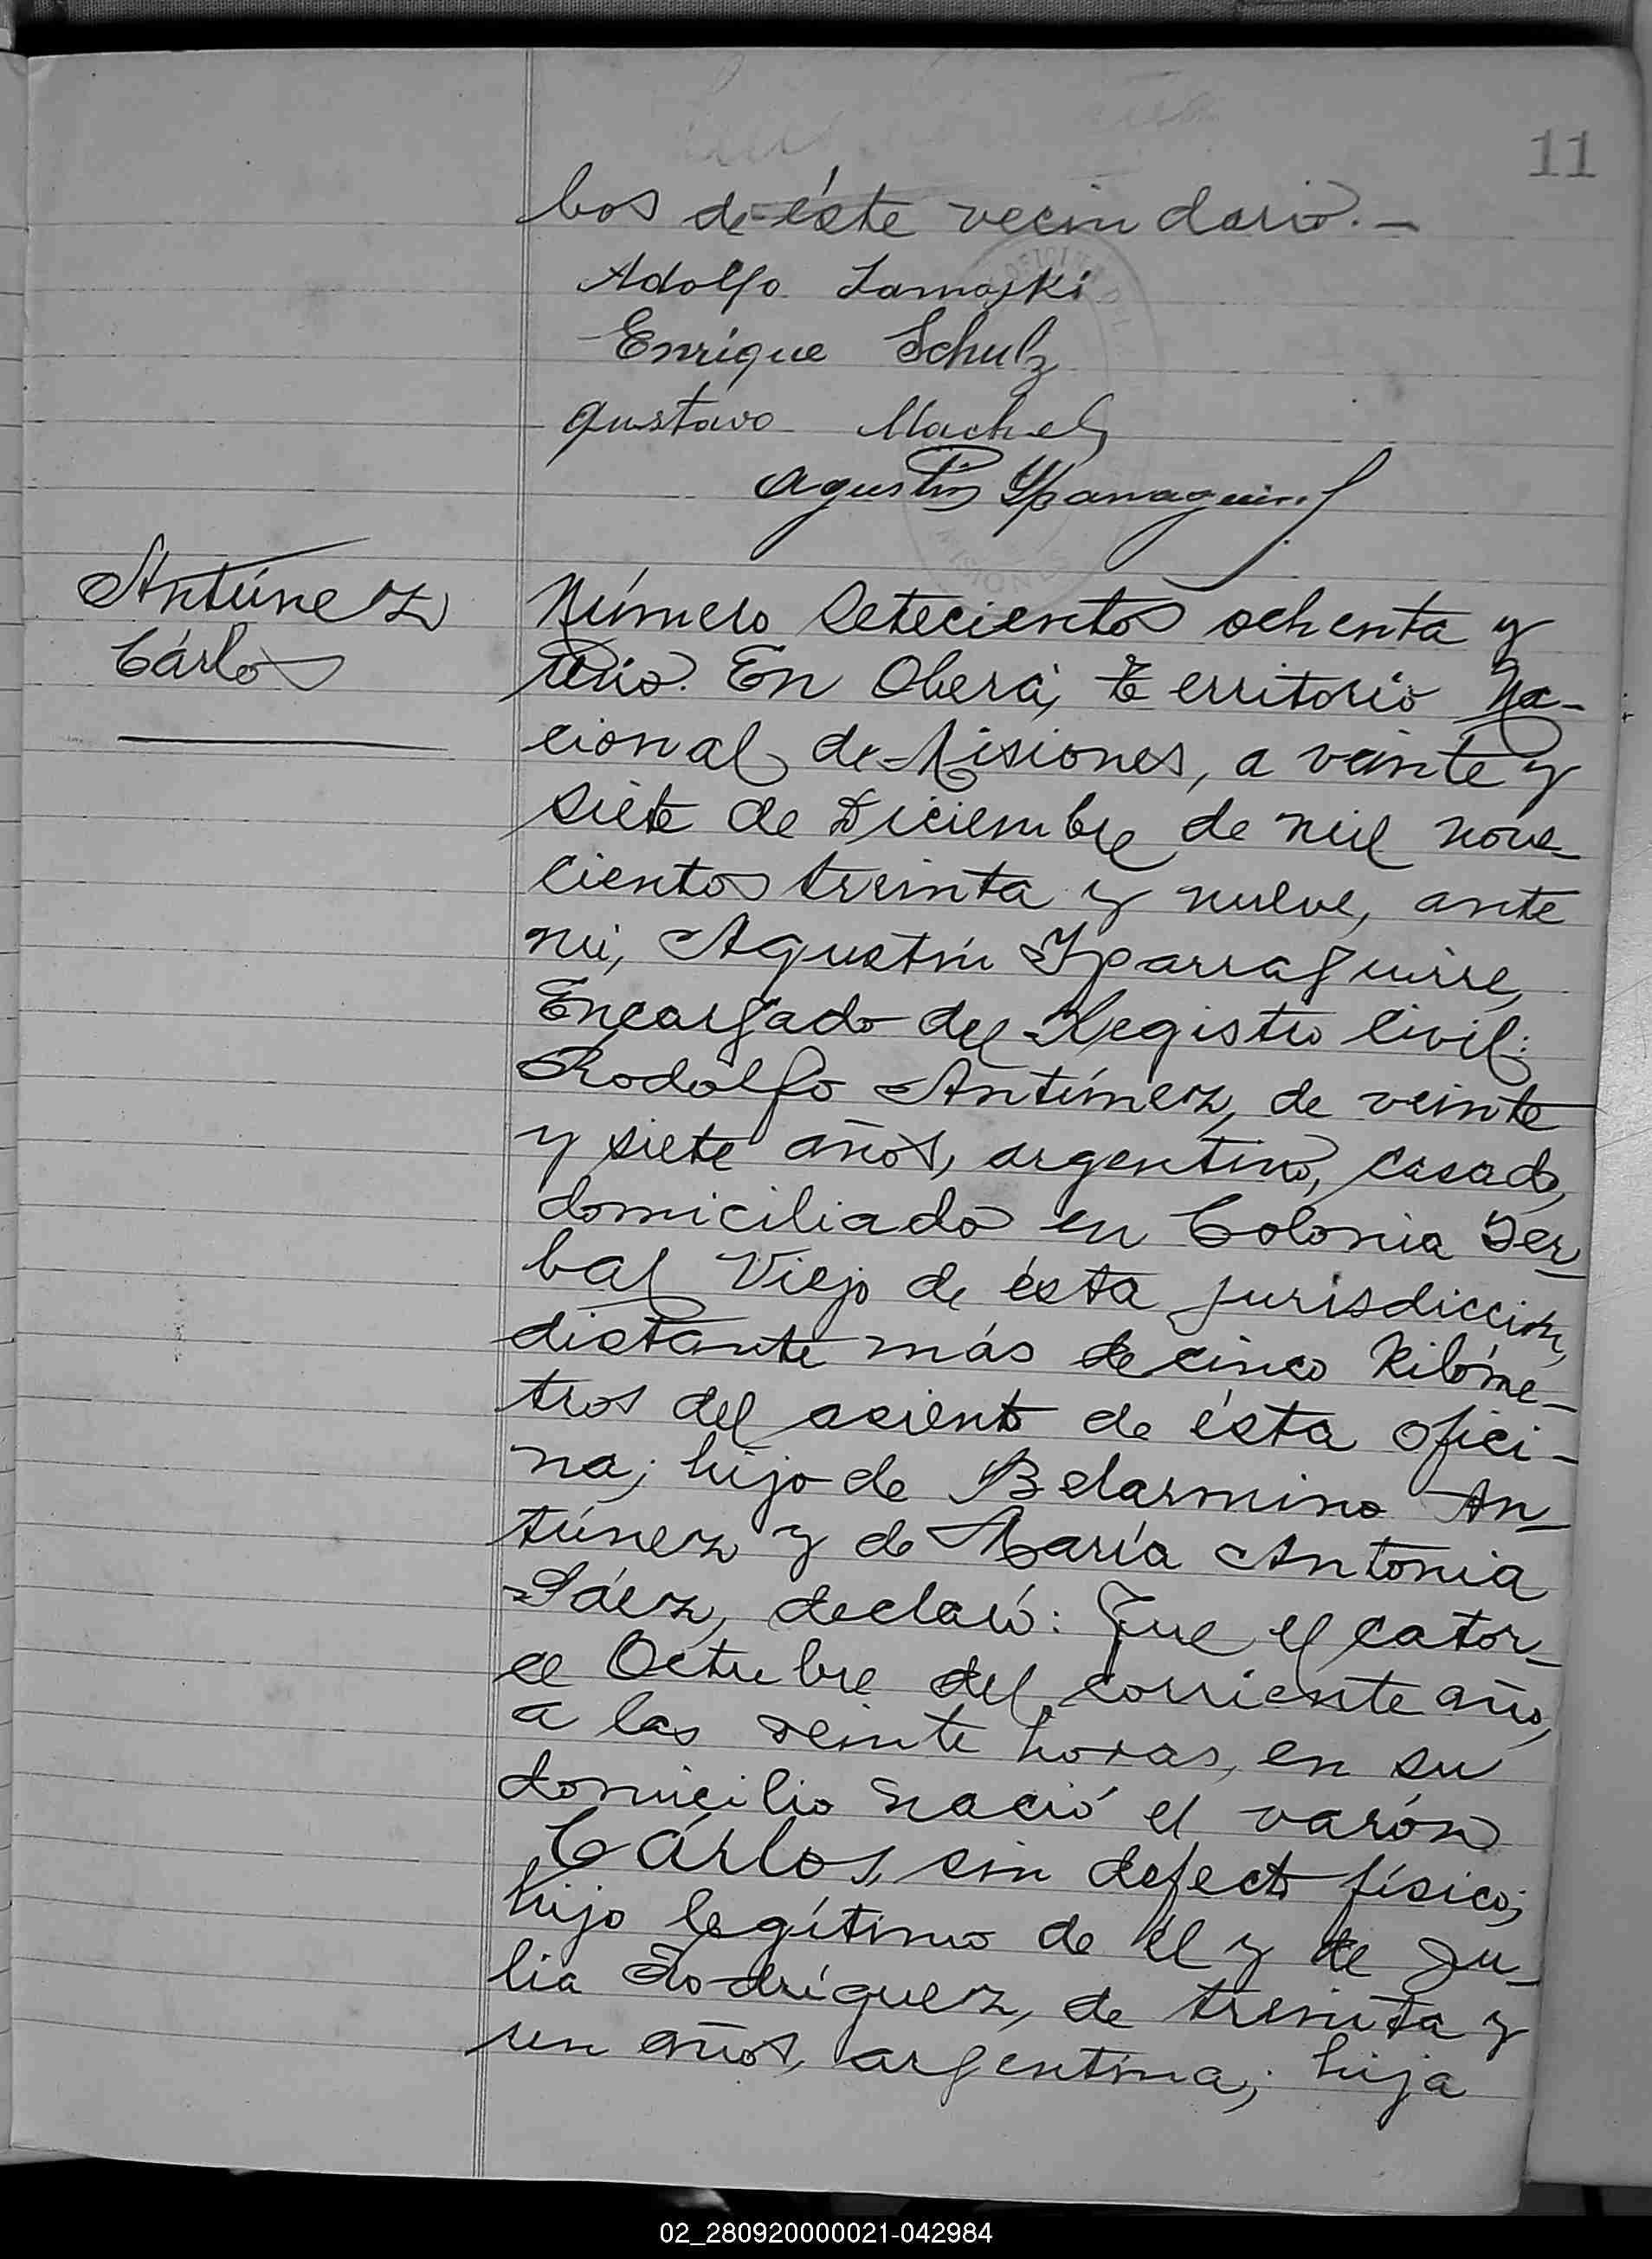 11
bos de éste vecindario.-
Adolfo Lamojki
Enrique Schulz
Gustavo
Agustín Yparraguirre
OFICINA DEL
MISIONES
Antúnez
Cárlos
Número setecientos ochenta y
seis. En Oberá, territorio Na-
cional de Misiones, a veinte y
siete de Diciembre de mil nove-
cientos treinta y nueve, ante
mi, Agustín Yparraguirre,
Encargado del Registro Civil:
Rodolfo Antúnez, de veinte
y siete años, argentino, casado,
domiciliado en Colonia Yer-
bal Viejo de ésta jurisdicción,
distante más de cinco kilóme-
tros del asiento de ésta ofici-
na; hijo de Belarmino An-
túnez y de María Antonia
Sáez, declaró: Que el cator-
ce Octubre del corriente año,
a las veinte horas, en su
domicilio nació el varón
Cárlos, sin defecto físico;
hijo legítimo de él y de Ju-
lia Rodríguez, de treinta y
un años, argentina; hija
02_280920000021-042984